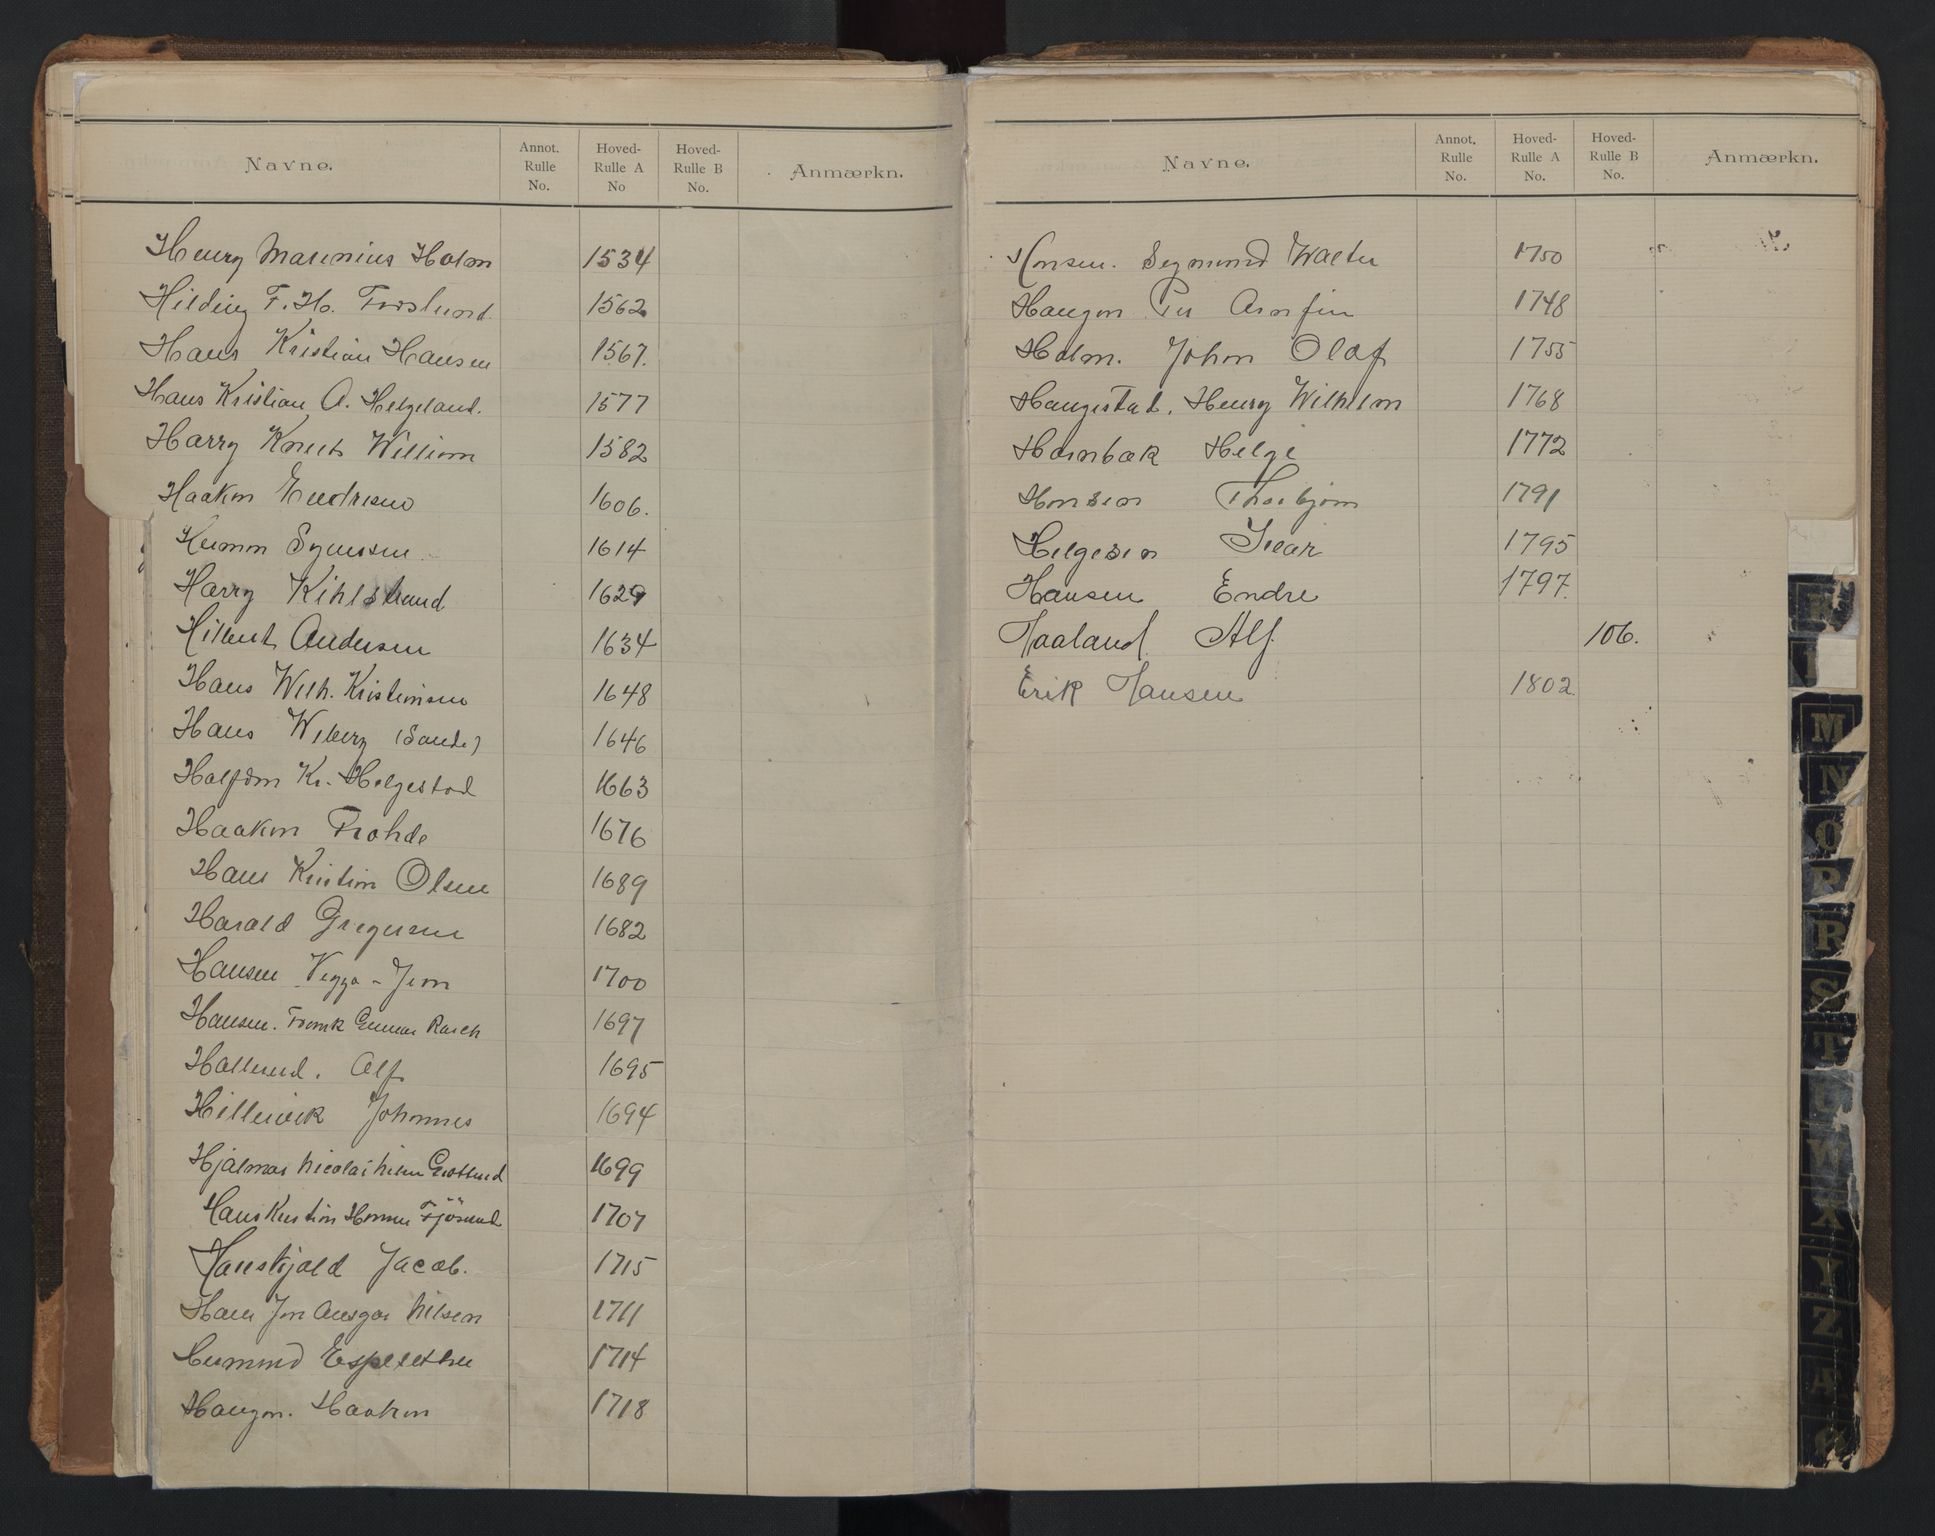 Navne.
Annot. Rulle No.
Hoved-Rulle A No
Hoved-Rulle B No.
Anmærkn.
Henry Marenius Holm 1534
Hilding F. H. Forslund 1562
Hans Kristian Hansen 1567.
Hans Kristian A. Helgeland. 1577
Harry Knuts William 1582
Haakon Endresen 1606.
1614
Harry Kihlstrand 1629
Hilbert Andersen 1634
Hans Wilh. Kristiansen 1648
Hans Wiberg (Sande) 1646
Halfdan Kr. Helgestad 1663
Haakon Frohde 1676
Hans Kristian Olsen 1689
Harald Gregersen 1682
Hansen Viggo - Jon 1700
Hansen. Frank Gunnar Rasch 1697
Hallund. Alf 1695
Hillevick Johannes 1694
Hjalmar Nicolai Nilsen 1699
Hans Kristian 1707
Jacob. 1715
Hans Jon Ansgar Nilsen 1711
1714
Haugen. Haakon 1718
Navne.
Annot. Rulle No.
Hoved-Rulle A No.
Hoved-Rulle B No.
Anmærkn.
Hansen. Sigmund Walter 1750
Haugen Per Arnfin 1748
Holm. Johan Olaf 1755
Haugestad. Henry Wilhelm 1768
Hornbæk Helge 1772
Hansen Thorbjørn 1791
Helgesen Ivar 1795
Hansen Endre 1797.
Haaland Alf. 106.
Erik Hansen 1802
K
M
N
O
P
R
S
T
U
W
X
Y
Z
Æ
Ø